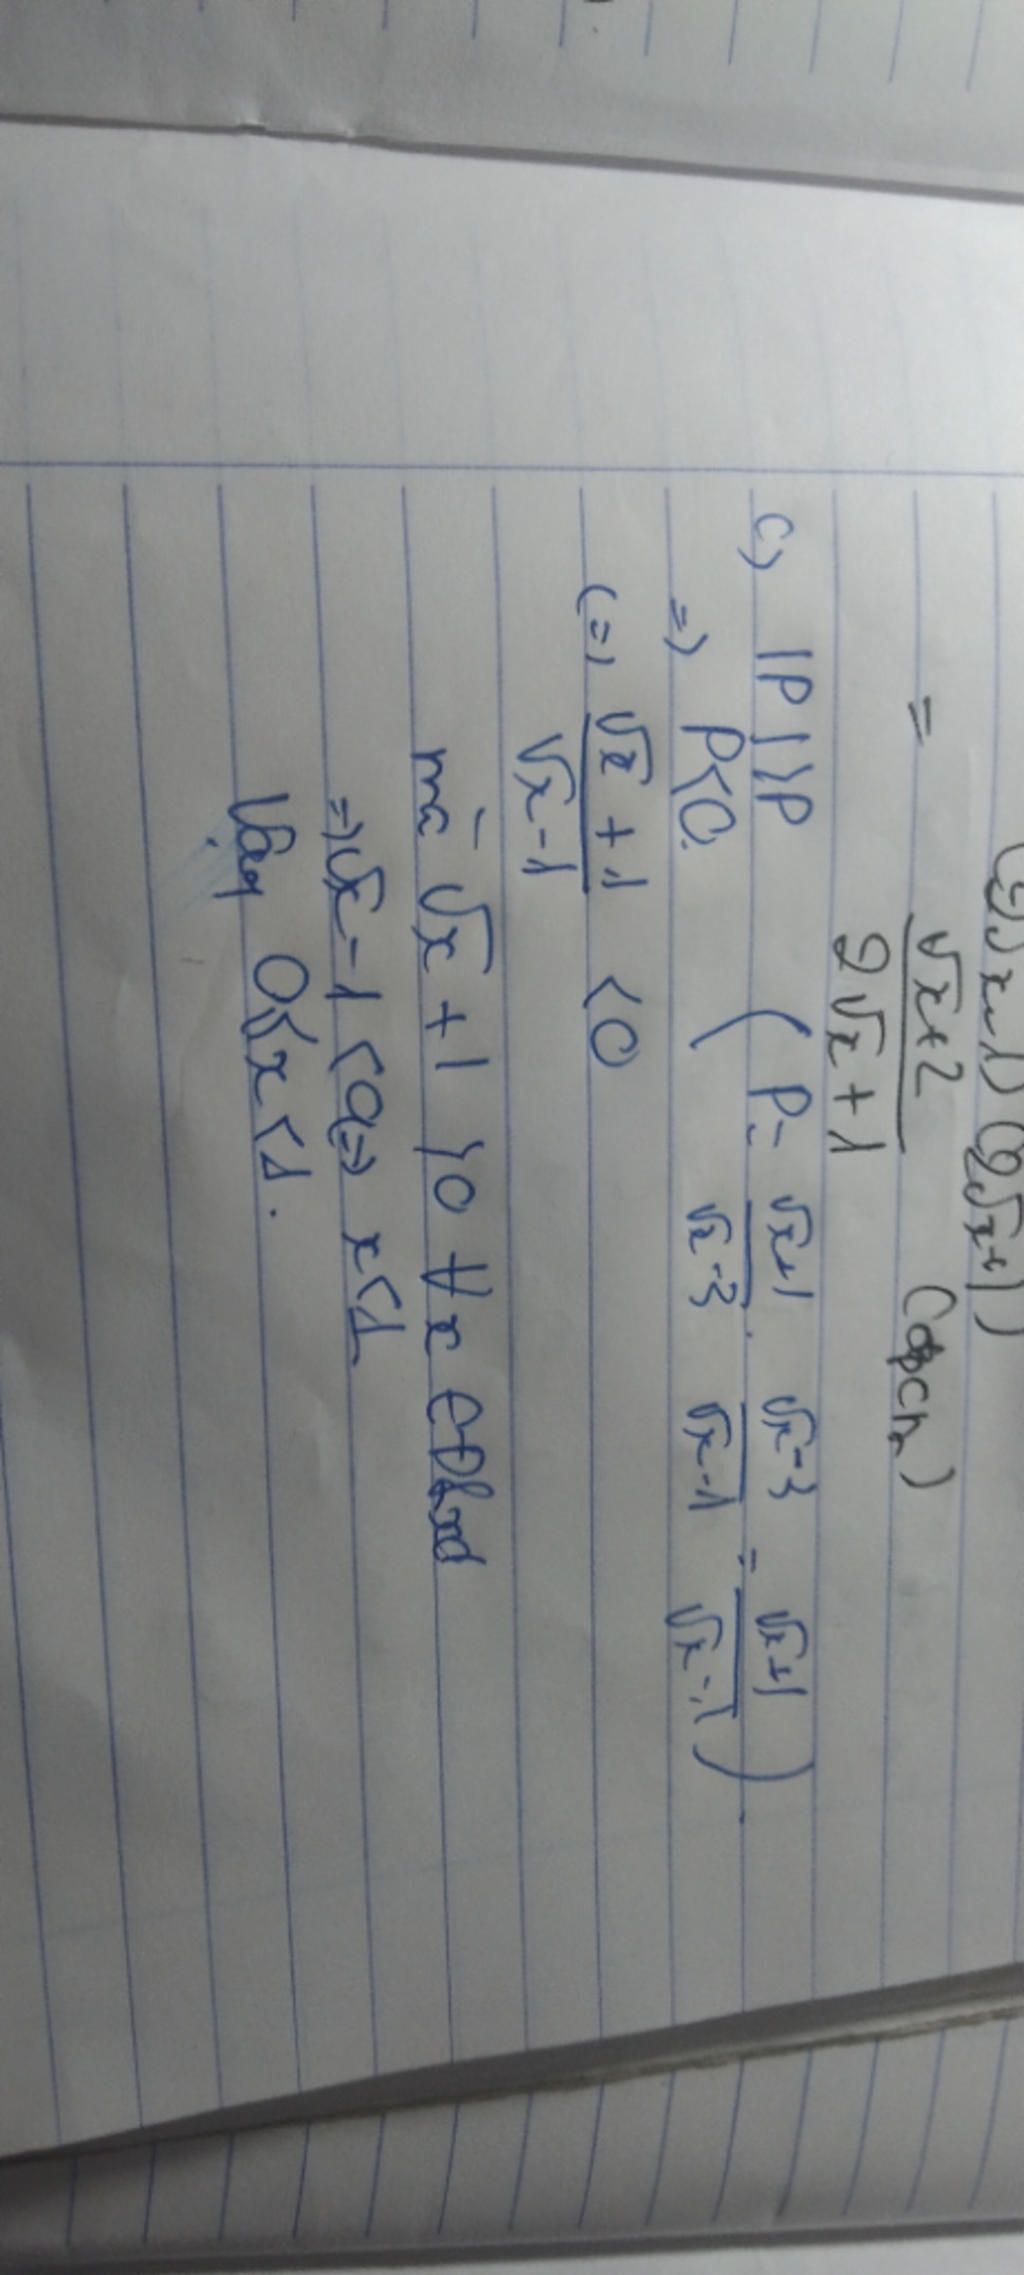 (√x-1)(2√x+1)
= √x+2 / 2√x+1 (đpcm)
c) |P| > P
=> P<0. (P= √x+1 / √x-3 . √x-3 / √x-1 = √x+1 / √x-1).
(=) √x+1 / √x-1 <0
mà √x+1 >0 ∀x ∈ Đkxđ
=> √x-1 <0 => x<1
Vậy 0≤x<1.